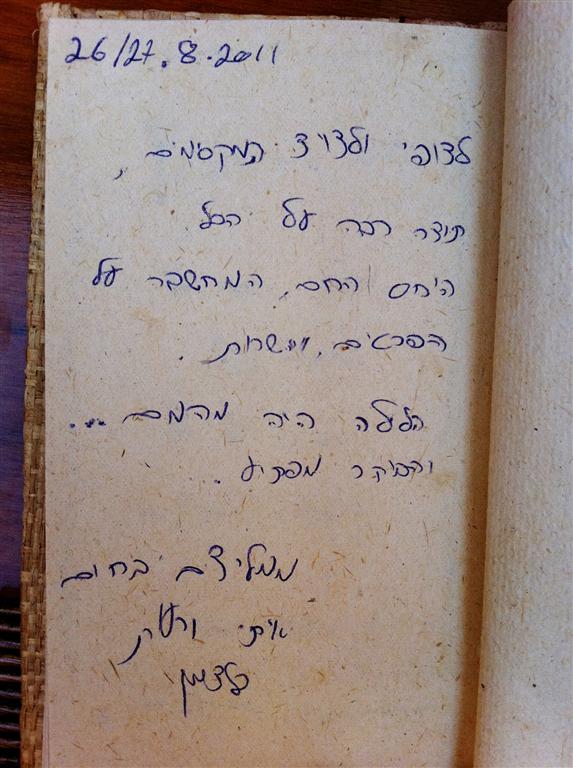 26/27.8.2011
לצופי ולדויד המקסימים,
תודה רבה על הכל
היחס החם, המחשבה על
הפרטים,
הלילה היה מהמם ...
והבוקר מפתיע.
ממליצים בחום
איתי